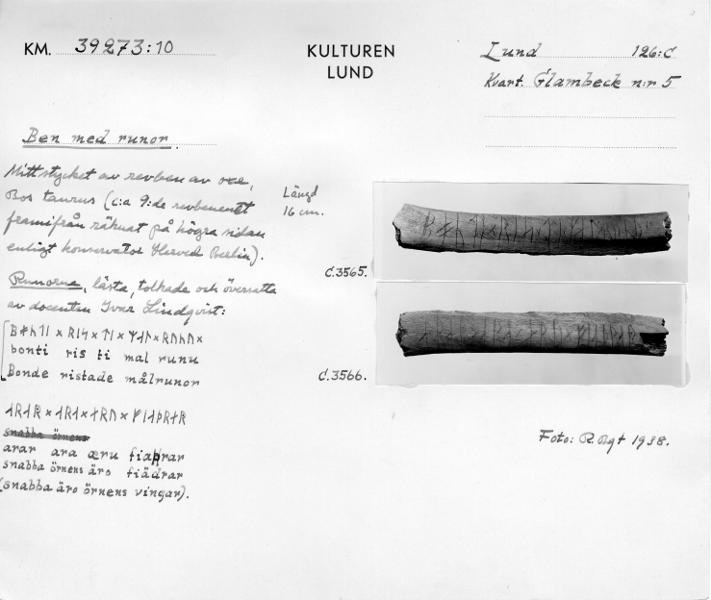 KM. 39273:10
KULTUREN
LUND
Lund 126:C
Kvart. Glambeck n:r 5
Ben med runor.
Mittstycket av revben av oxe,
Bos taurus (c:a 9:de revbenet
framifrån räknat på högra sidan
enligt konservator Berlin).
Längd
16 cm.
Runorna, lästa, tolkade och översatta
av docenten Ivar Lindqvist:
ᛒᚮᚿᛏᛁ × ᚱᛁᛋ × ᛏᛁ × ᛘᛆᛚ × ᚱᚢᚿᚢ ×
bonti ris ti mal runu
Bonde ristade målrunor
ᛆᚱᛆᚱ × ᛆᚱᛆ × ᚬᚱᚢ × ᚠᛁᛆᚦᚱᛆᚱ
snabba örnens
arar ara æru fiaþrar
snabba örnens äro fiädrar
(snabba äro örnens vingar).
C.3565.
C.3566.
Foto: R. Bgt 1938.